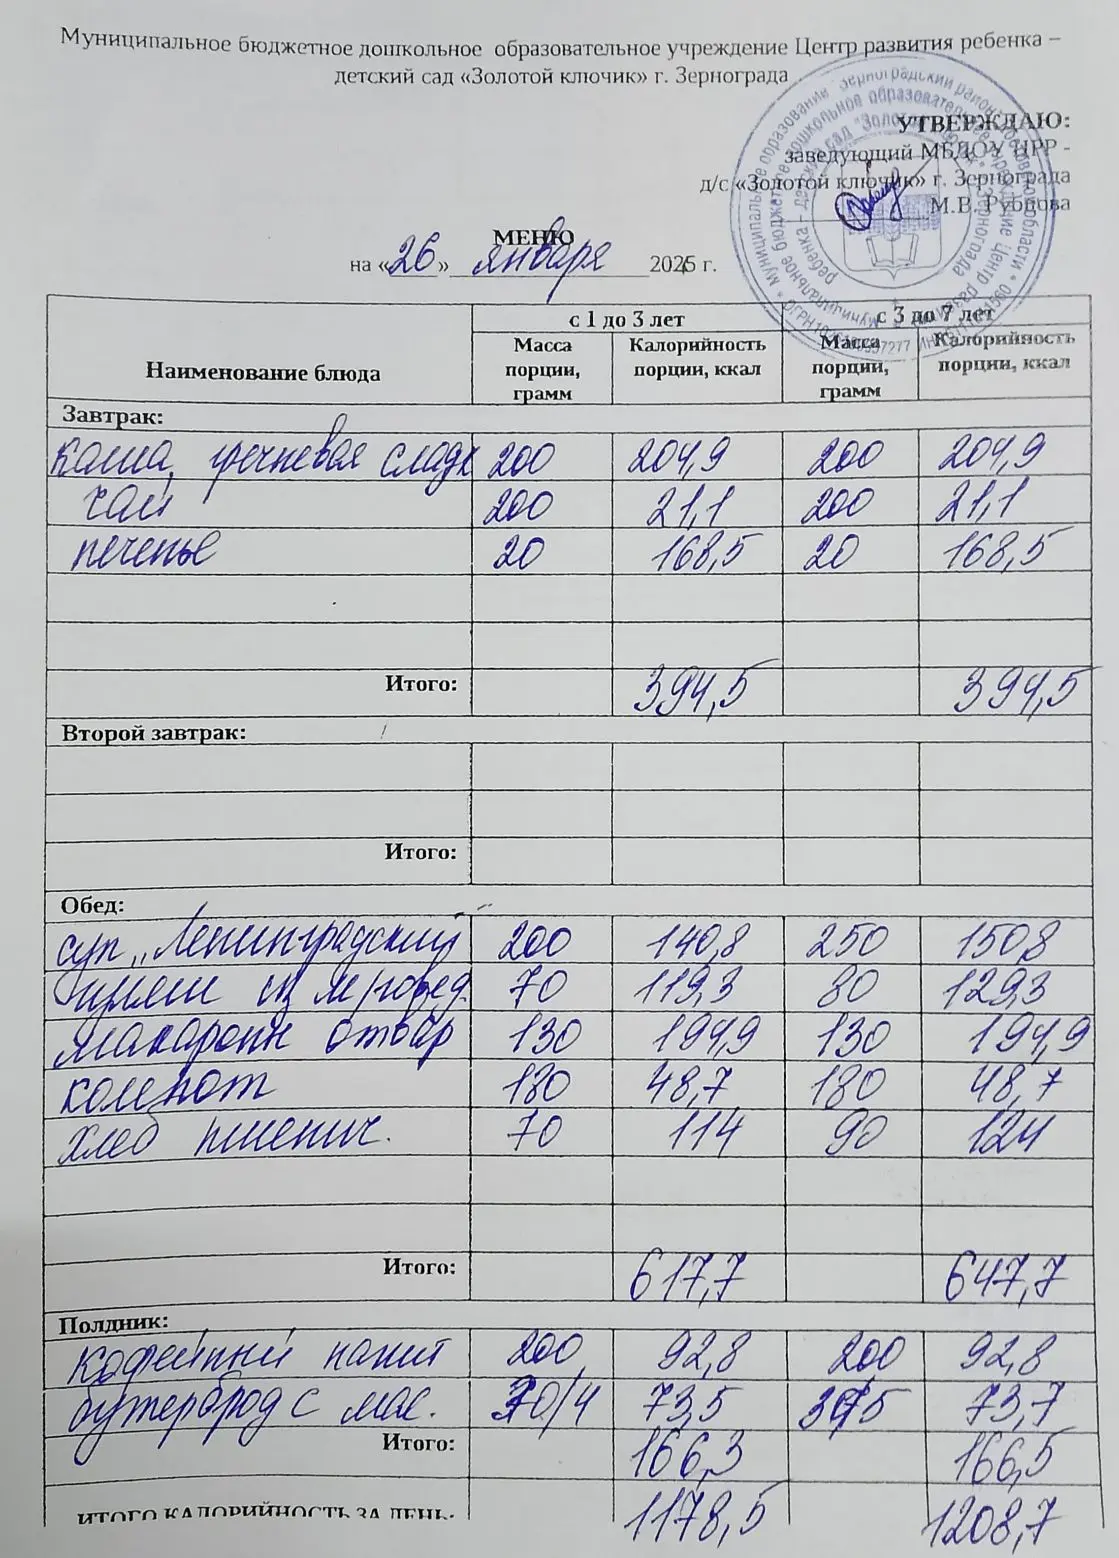 Муниципальное бюджетное дошкольное образовательное учреждение Центр развития ребенка –
детский сад «Золотой ключик» г. Зернограда
УТВЕРЖДАЮ:
заведующий МБДОУ ЦРР -
д/с «Золотой ключик» г. Зернограда
М.В. Рубцова
МЕНЮ
на «26» января 2026 г.
с 1 до 3 лет с 3 до 7 лет
Наименование блюда Масса порции, грамм Калорийность порции, ккал Масса порции, грамм Калорийность порции, ккал
Завтрак:
каша гречневая сладк 200 204,9 200 204,9
чай 200 21,1 200 21,1
печенье 20 168,5 20 168,5
Итого: 394,5 394,5
Второй завтрак:
Итого:
Обед:
суп „Ленинградский“ 200 140,8 250 150,8
из м/говяд. 70 119,3 80 129,3
макароны отвар 130 194,9 130 194,9
компот 180 48,7 180 48,7
хлеб пшенич. 70 114 90 124
Итого: 617,7 647,7
Полдник:
кофейный напит 200 92,8 200 92,8
бутерброд с мас. 30/4 73,5 30/5 73,7
Итого: 166,3 166,5
ИТОГО КАЛОРИЙНОСТЬ ЗА ДЕНЬ: 1178,5 1208,7